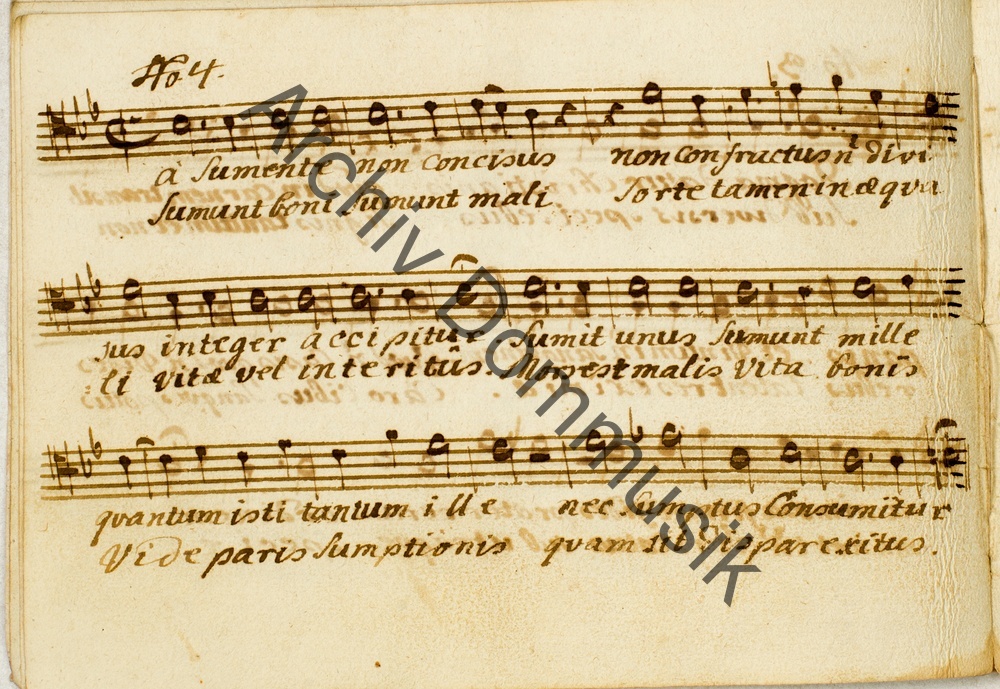 No 4.
à Sumente non concisus non confractus n̄ divi
Sumunt boni Sumunt mali Sorte tamen inæqua
sus integer accipitur Sumit unus Sumunt mille
li Vitæ vel interitûs. Mors est malis Vita bonis
quantum isti tantum ille nec Sumptus Consumitur
Vide paris Sumptionis quam sit dispar exitus.
Archiv Dommusik